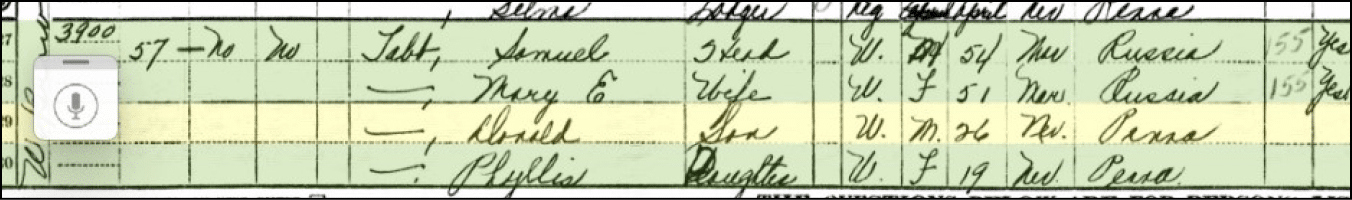 Selma Lodger Neg April Nev Penna
27 3900 57 — No No Tabt, Samuel Head W. M 54 Mar Russia 155 Yes
28 —, Mary E Wife W. F 51 Mar. Russia 155 Yes
29 —, Donald Son W. M. 26 Nev. Penna
30 —. Phyllis Daughter W F 19 Nev Penna.
THE QUESTIONS BELOW ARE FOR PERSONS